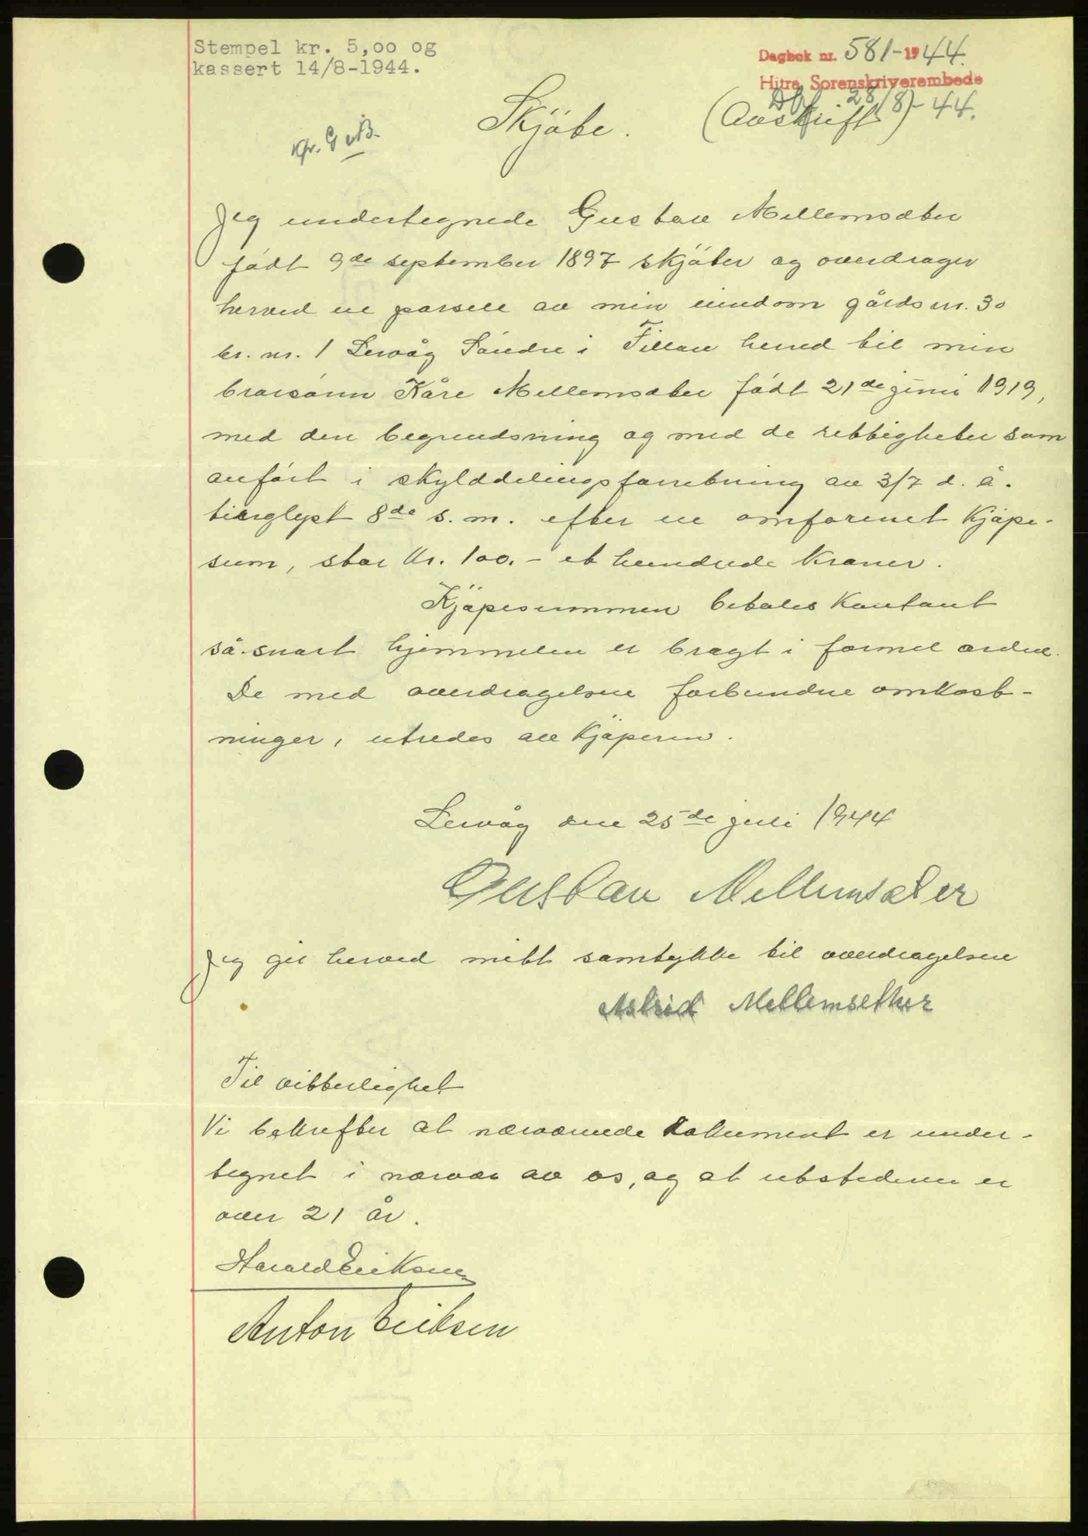 Stempel kr. 5,00 og
kassert 14/8-1944.
Dagbok nr. 581-1944.
Hitra Sorenskriverembede
Dbf 28/8-44.
(Avskrift)
Skjöte.
Kfr. G
Jeg undertegnede Gustav Mellemsæter
födt 9de september 1897 skjöter og overdrager
herved en parsell av min eiendom gårdsnr. 30
br. nr. 1 Lervåg Söndre i Fillan herred til min
brorsönn Kåre Mellemsæter födt 21de juni 1919,
med den begrendsning og med de rettigheter som
anfört i skylddelingsforretning av 3/7 d. å.
tinglyst 8de s. m. efter en omforenet Kjöpe-
sum, stor Kr. 100.- et hundrede Kroner.
Kjöpesummen betales Kontant
så snart hjemmelen er bragt i formel orden.
De med overdragelsen forbundne omkost-
ninger, utredes av Kjöperen.
Lervåg den 25de juli 1944
Gustav Mellemsæter
Jeg gir herved mitt samtykke til overdragelsen
Astrid Mellemsether
Til vitterlighet
Vi bekrefter at nærværende dokument er under-
tegnet i nærvær av os, og at utstederen er
over 21 år.
Harald Eriksen
Anton Eriksen